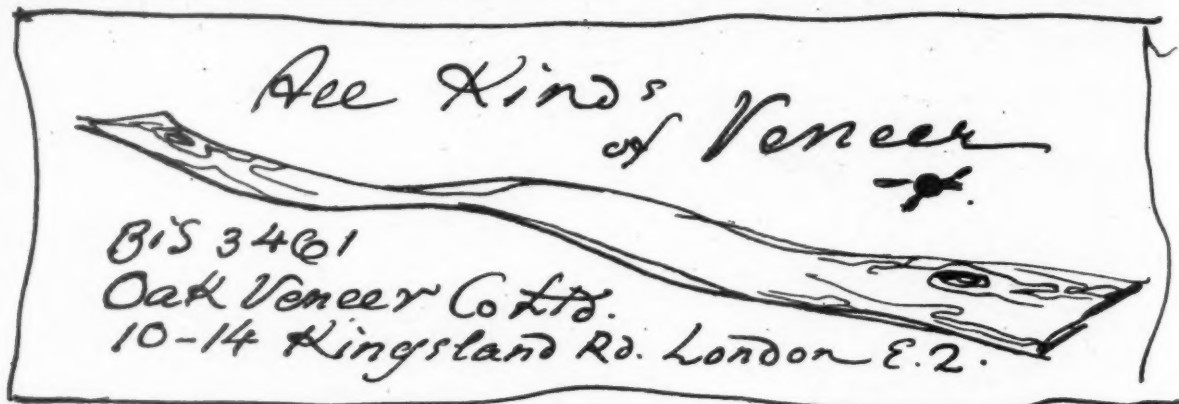 All Kinds
of Veneer
BiS 3461
Oak Veneer Co Ltd.
10-14 Kingsland Rd. London E.2.